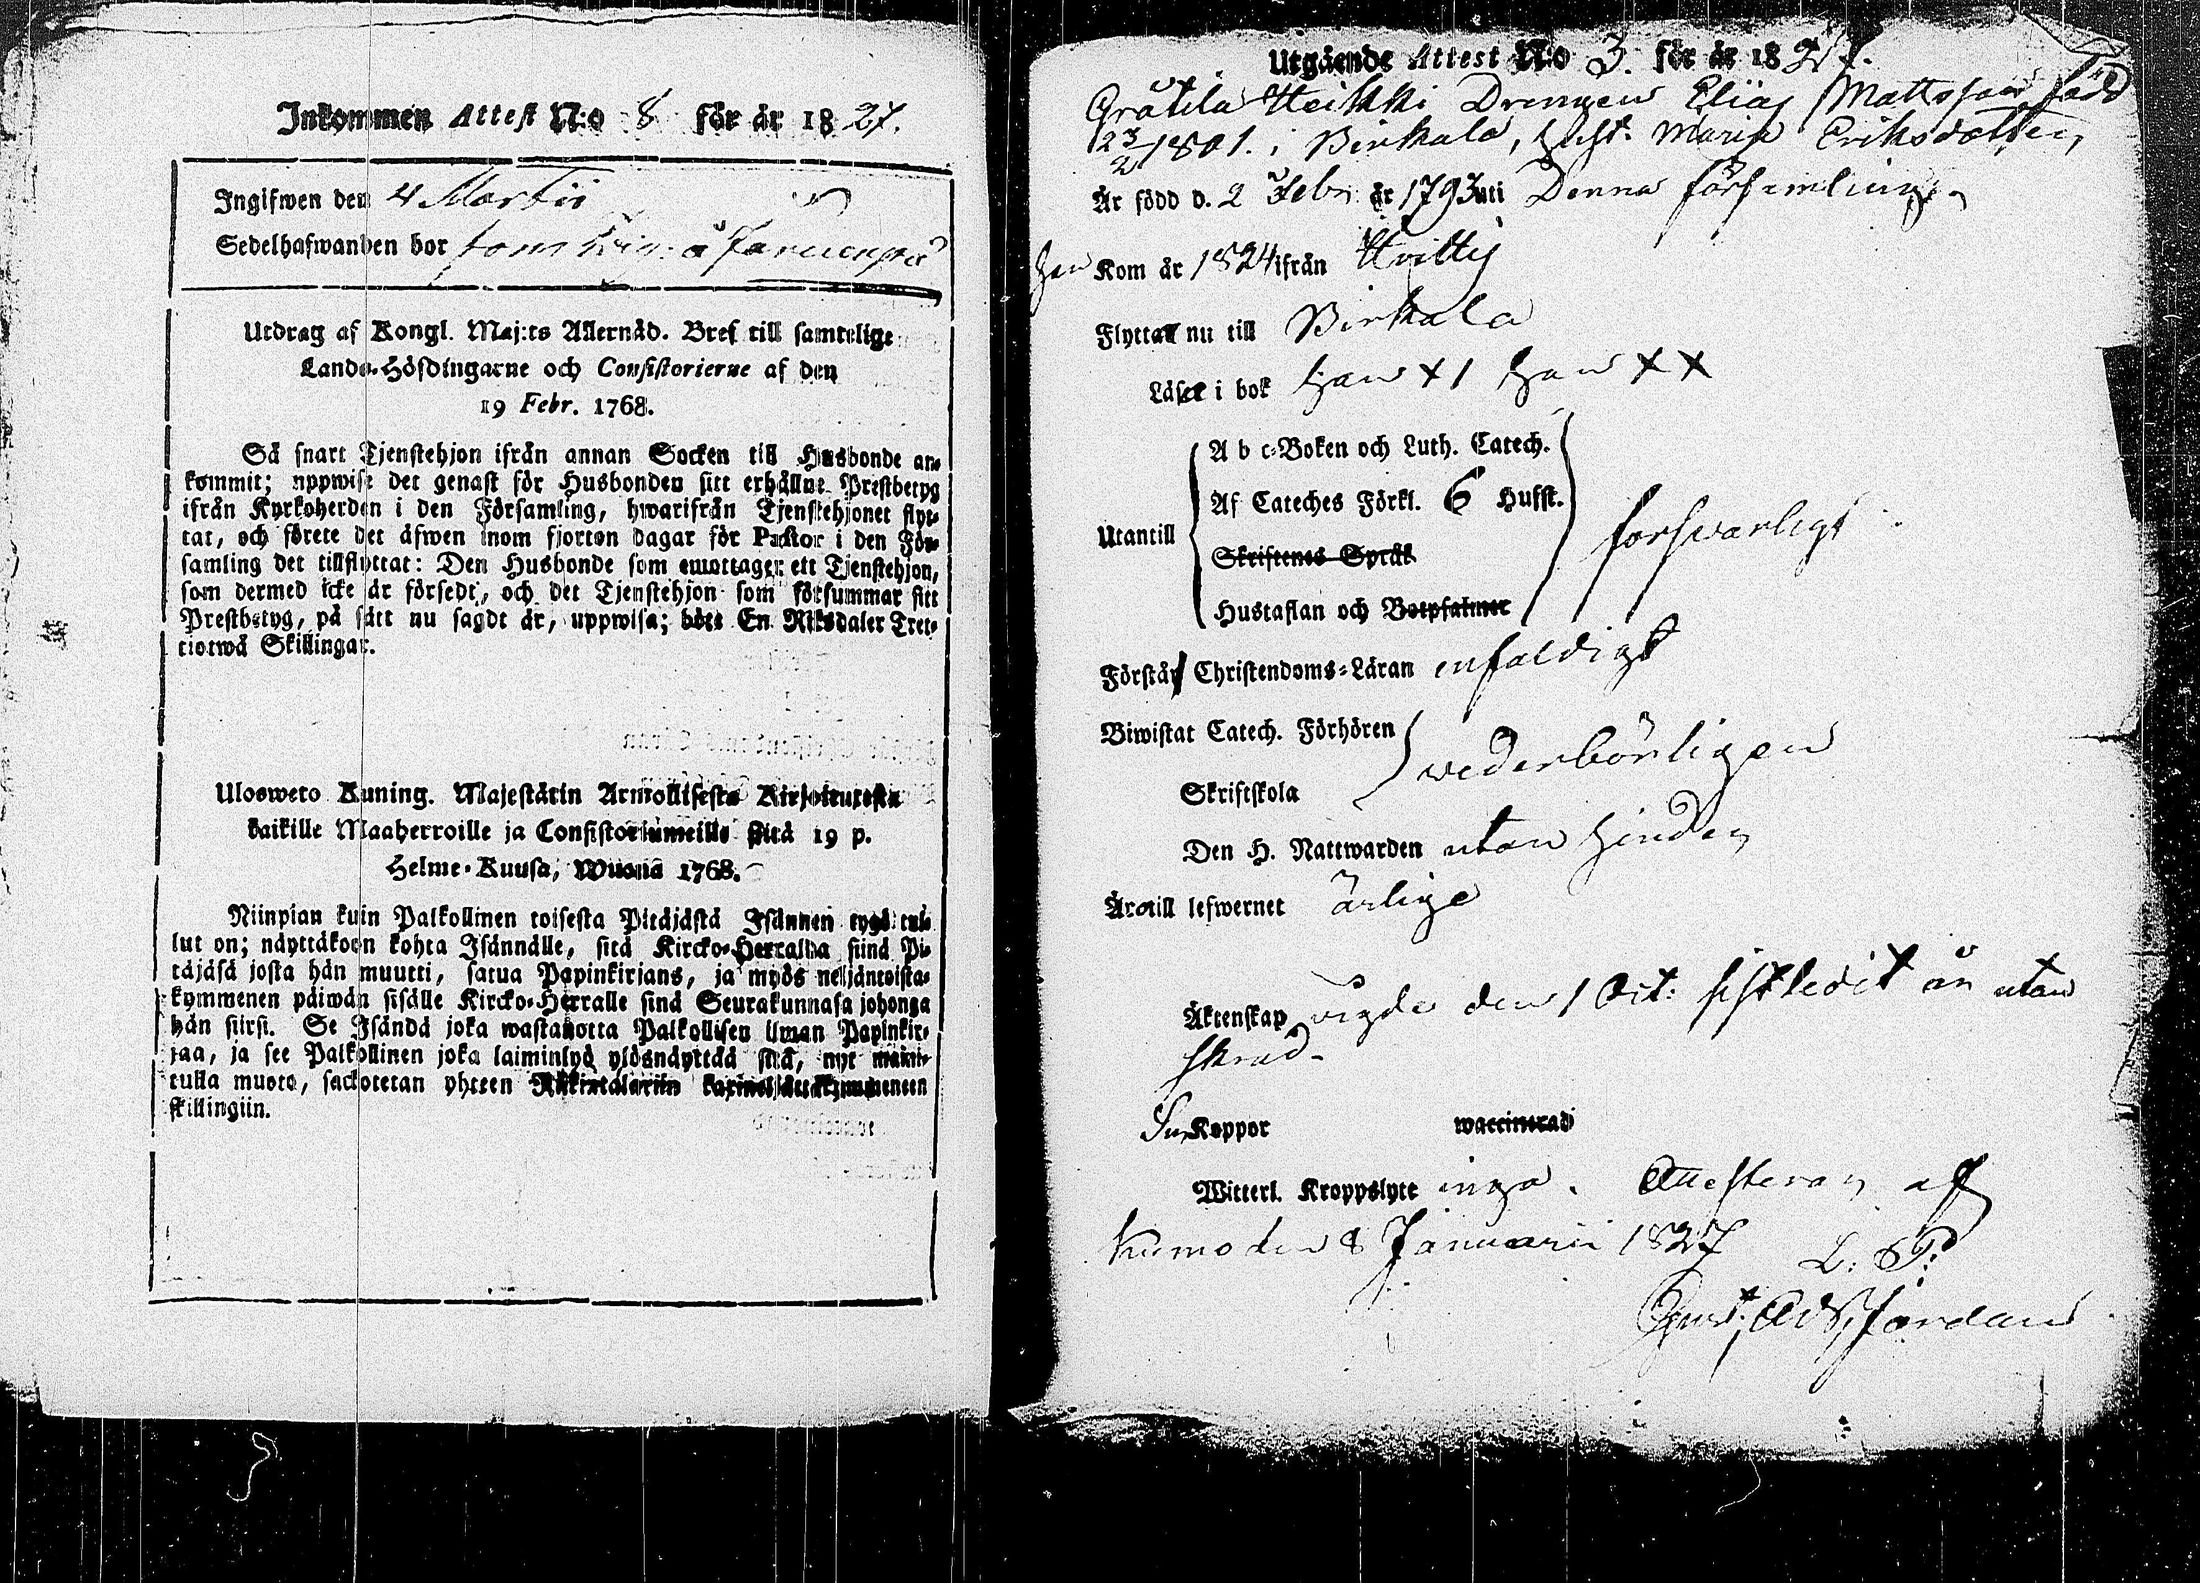 Inkommen Attest N:o 8 för år 1827.
Ingifwen den 4 Martii
Sedelhafwanden bor som
Utdrag af Kongl. Maj:ts Allernåd. Bref till samtelige
Lands-Höfdingarne och Consistorierne af den
19 Febr. 1768.
Så snart Tjenstehjon ifrån annan Socken till Husbonde an-
kommit; uppwise det genast för Husbonden sitt erhållne Prestbetyg
ifrån Kyrkoherden i den Församling, hwarifrån Tjenstehjonet flyt-
tat, och förete det äfwen inom fjorton dagar för Pastor i den För-
samling det tillflyttat: Den Husbonde som emottager ett Tjenstehjon,
som dermed icke är försedt, och det Tjenstehjon som försummar sitt
Prestbetyg, på sätt nu sagdt är, uppwisa; böte En Riksdaler Tret-
tiotwå Skillingar.
Ulosweto Kuning. Majestätin Armollisesta Kirjoituxesta
kaikille Maaherroille ja Consistoriumeille siitä 19 p.
Helme-Kuusa, Wuona 1768.
Niinpian kuin Palkollinen toisesta Pitäjästä Isännen tygö tul-
lut on; näyttäköön kohta Isännälle, sitä Kircko-Herralda siinä Pi-
täjäsä josta hän muutti, satua Papinkirjans, ja myös neljäntoista-
kymmenen päiwän sisälle Kircko-Herralle siinä Seurakunnasa johonga
hän siirsi. Se Isändä joka wastanotta Palkollisen ilman Papinkir-
jaa, ja see Palkollinen joka laiminlyö ylösnäyttää sitä, nyt maini-
tulla muoto, sackotetan yhteen Riikintalariin
skillingiin.
Utgående Attest N:o 3. för år 1827.
Gråtila Heikki Drengen Elias Mattsson född
23/2 1801. i Birkala, hust: Maria Eriksdotter,
Är född d. 2 Febr. år 1793 uti Denna församling
han Kom år 1824 ifrån Hvittis
Flytta nu till Birkala
Läser i bok han X I hon X X
A b c-Boken och Luth. Catech.
Af Cateches Förkl. 6 Hufst.
Utantill Skriftenes Språk försvarligt
Hustaflan och Botpsalmer
Förstår Christendoms-Läran enfaldigt
Biwistat Catech. Förhören wederbörligen
Skriftskola
Den H. Nattwarden utan hinder
Äro till lefwernet ärlige
Äktenskap vigde den 1 Oct: sistledit år utan
skrud-
Koppor waccinerad
Witterl. Kroppslyte inga. Attesteras af
Kumo den 8 Januarii 1827 L. S. P.